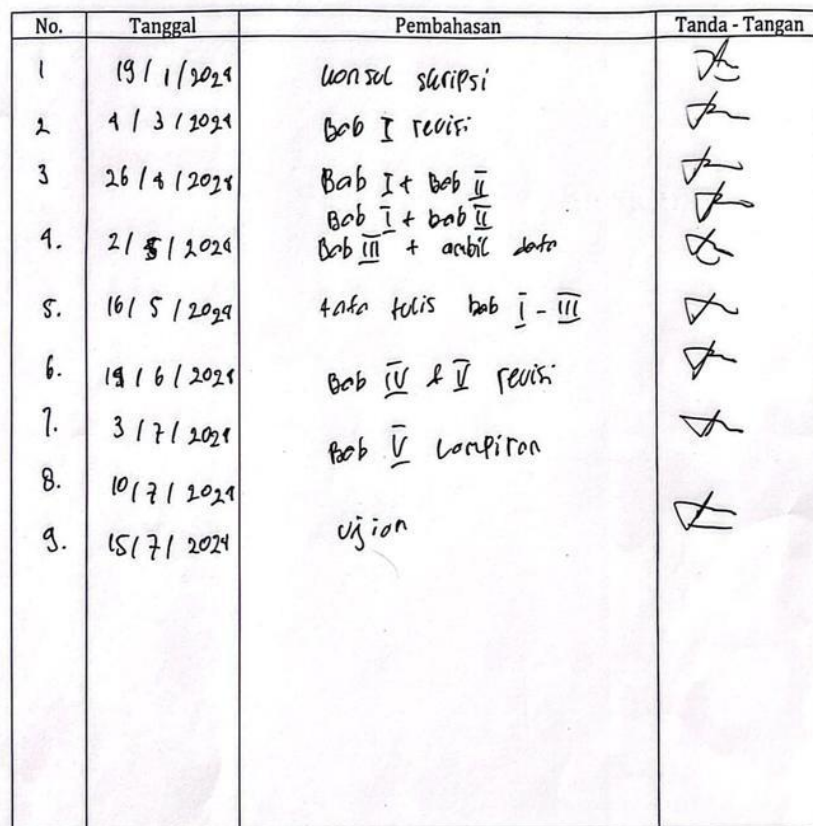 No. Tanggal Pembahasan Tanda - Tangan
1 19/1/2024 konsul skripsi
2 4/3/2024 Bab I revisi
3 26/4/2024 Bab I + Bab II
Bab I + bab II
4. 2/5/2024 Bab III + ambil data
5. 16/5/2024 tata tulis bab I - III
6. 19/6/2024 Bab IV & V revisi
7. 3/7/2024 Bab V Lampiran
8. 10/7/2024
9. 15/7/2024 Ujian